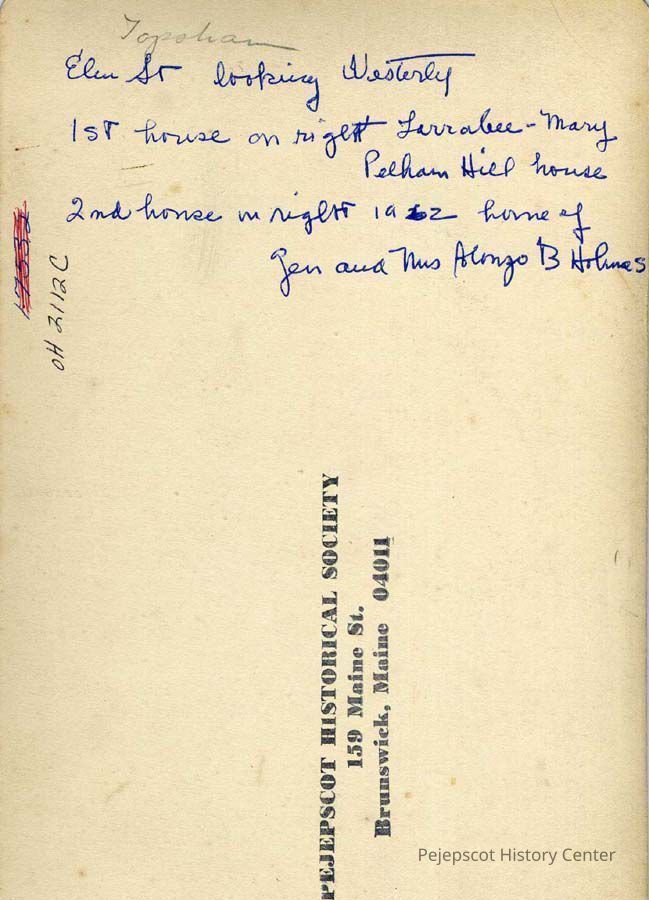 Topsham
Elm St looking Westerly
1st house on right Larrabee - Mary
Pelham Hill house
2nd house on right 1962 home of
Gen and Mrs Alonzo B Holmes
OH 2112C
PEJEPSCOT HISTORICAL SOCIETY
159 Maine St.
Brunswick, Maine 04011
Pejepscot History Center